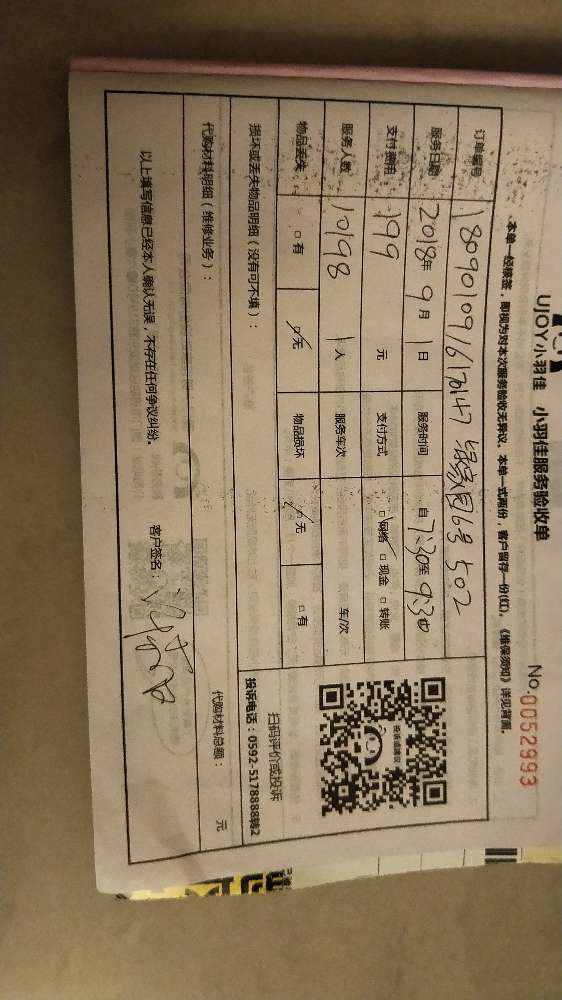 UJOY小羽佳 小羽佳服务验收单
No.0052993
本单一经接签，即视为对本次服务验收无异议。本单一式两份，客户留存一份(红)。《维保须知》详见背面。
订单编号 180901091617047 绿家园6号502
服务日期 2018年9月1日 服务时间 自7:30至9:30
支付费用 199元 支付方式 □网络 □现金 □转账
服务人数 10198 1人 服务车次 车/次
物品丢失 □有 □无 物品损坏 □无 □有
扫码评价或投诉
投诉电话：0592-5178888转2
投诉或建议
损坏或丢失物品明细（没有可不填）：
代购材料明细（维修业务）： 代购材料总额： 元
以上填写信息已经本人确认无误，不存在任何争议纠纷。 客户签名：